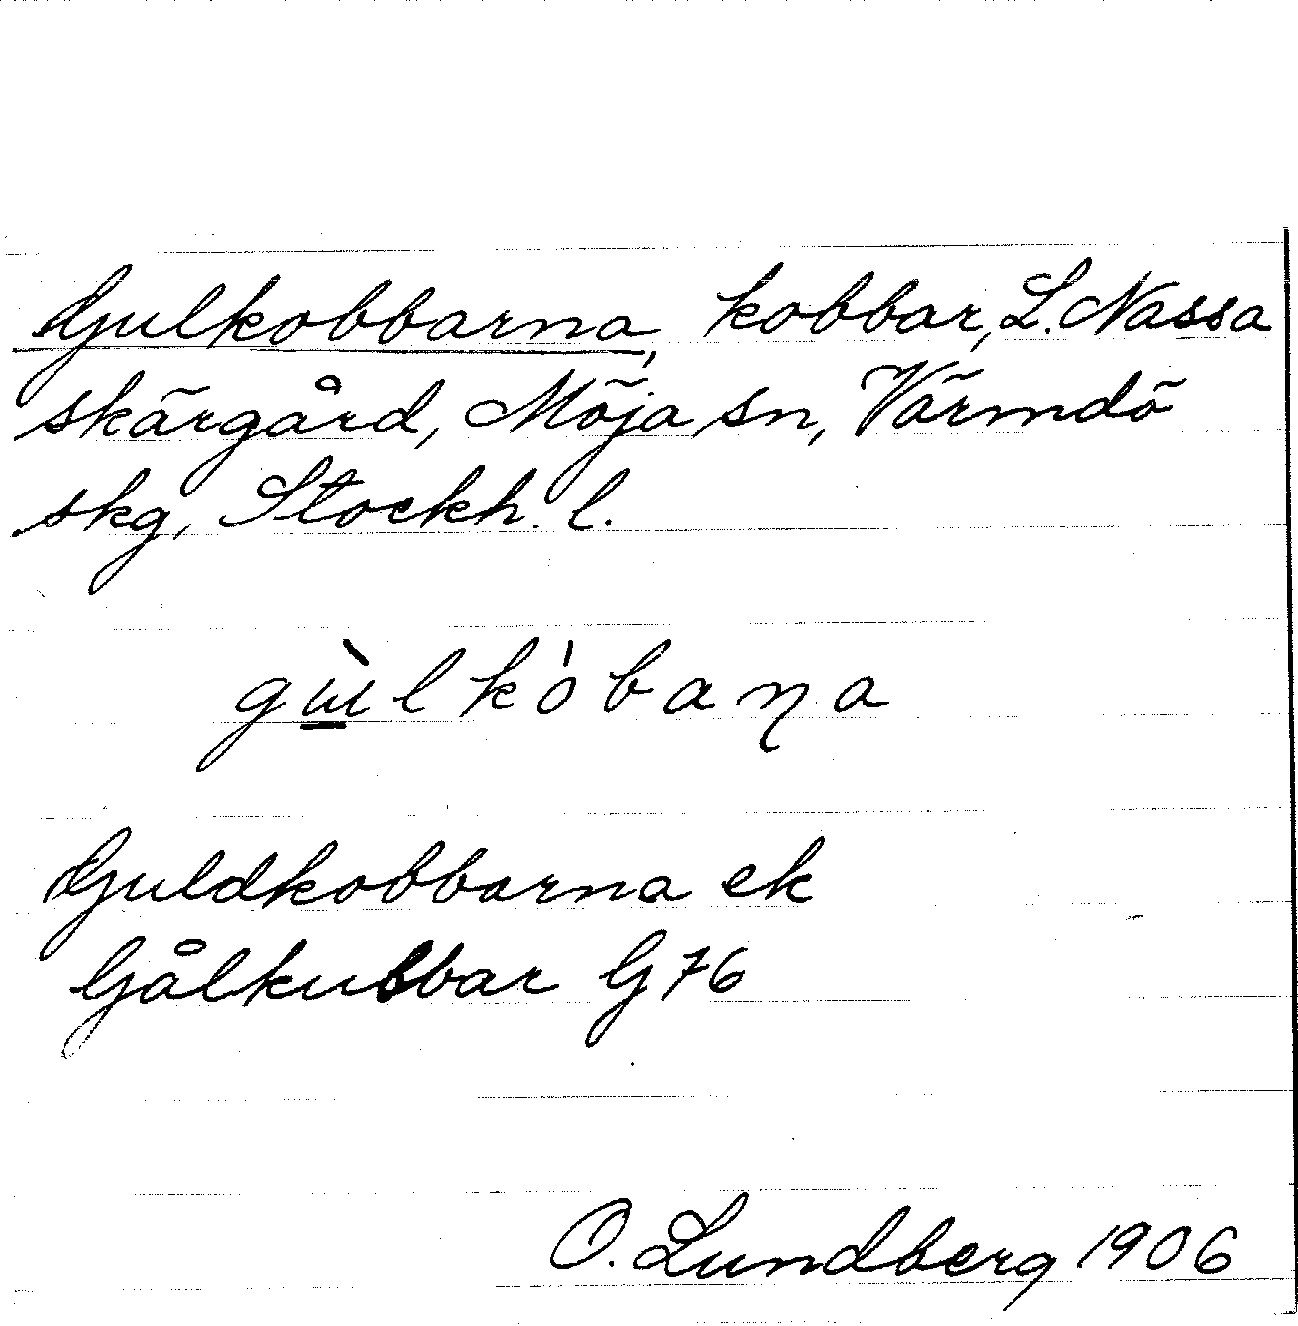 Gulkobbarna, kobbar, L. Nassa
skärgård, Möja sn, Värmdö
skg, Stockh. l.
gɯ̲̀lkòbaɳa
Guldkobbarna ek
Gålkubbar G 76
O. Lundberg 1906